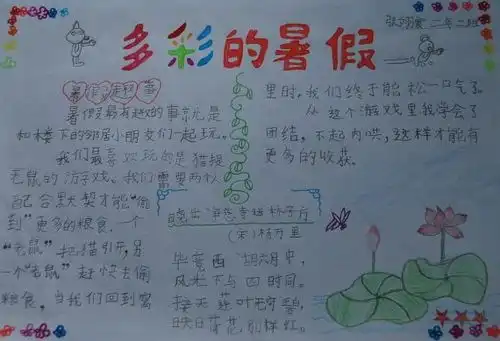 多彩的暑假
二年二班
暑假趣事
暑假最有趣的事就是
和楼下的邻居小朋友们一起玩。
我们最喜欢玩的是猫捉
老鼠的游戏。我们需要两人
配合默契才能“偷
到”更多的粮食，一个
“老鼠”把猫引开，另
一个“老鼠”赶快去偷
粮食，当我们回到窝
里时，我们终于能松一口气了。
从这个游戏里我学会了
团结，不起内哄，这样才能有
更多的收获。
晓出净慈寺送林子方
(宋)杨万里
毕竟西湖六月中，
风光不与四时同。
接天莲叶无穷碧，
映日荷花别样红。